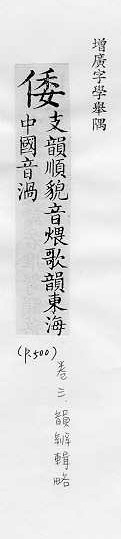 增廣字學舉隅
倭支韻順貌音煨歌韻東海
中國音渦
(P.500)
卷三.韻辨輯略